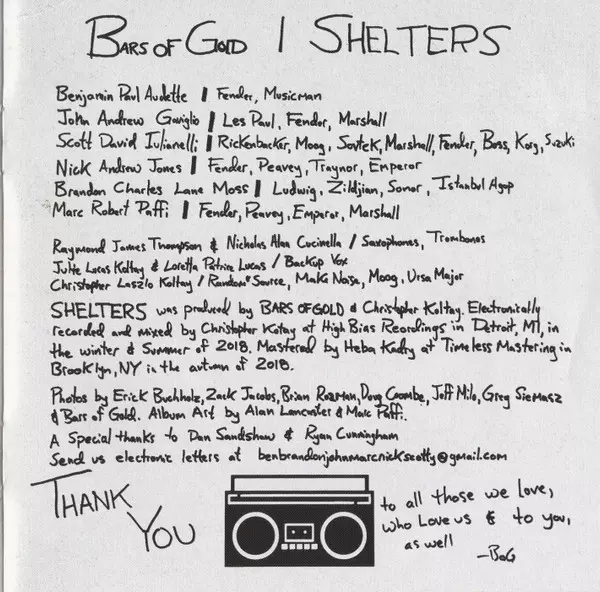 BARS OF GOLD | SHELTERS
Benjamin Paul Audette | Fender, Musicman
John Andrew Gaviglio | Les Paul, Fender, Marshall
Scott David Iulianelli | Rickenbacker, Moog, Sovtek, Marshall, Fender, Boss, Korg, Suzuki
Nick Andrew Jones | Fender, Peavey, Traynor, Emperor
Brandon Charles Lane Moss | Ludwig, Zildjian, Sonor, Istanbul Agop
Marc Robert Paffi | Fender, Peavey, Emperor, Marshall
Raymond James Thompson & Nicholas Alan Cucinella / Saxophones, Trombones
Julie Lucas Koltay & Loretta Patrice Lucas / Backup Vox
Christopher Laszlo Koltay / Random*Source, Make Noise, Moog, Ursa Major
SHELTERS was produced by BARS OF GOLD & Christopher Koltay. Electronically
recorded and mixed by Christopher Kotay at High Bias Recordings in Detroit, MI, in
the winter & Summer of 2018. Mastered by Heba Kadry at Timeless Mastering in
Brooklyn, NY in the autumn of 2018.
Photos by Erick Buchholz, Zack Jacobs, Brian Rozman, Doug Coombe, Jeff Milo, Greg Siemasz
& Bars of Gold. Album Art by Alan Lancaster & Marc Paffi.
A Special thanks to Dan Sandshaw & Ryan Cunningham
Send us electronic letters at benbrandonjohnmarcnickscotty@gmail.com
THANK
YOU
to all those we love,
who Love us & to you,
as well
-BoG